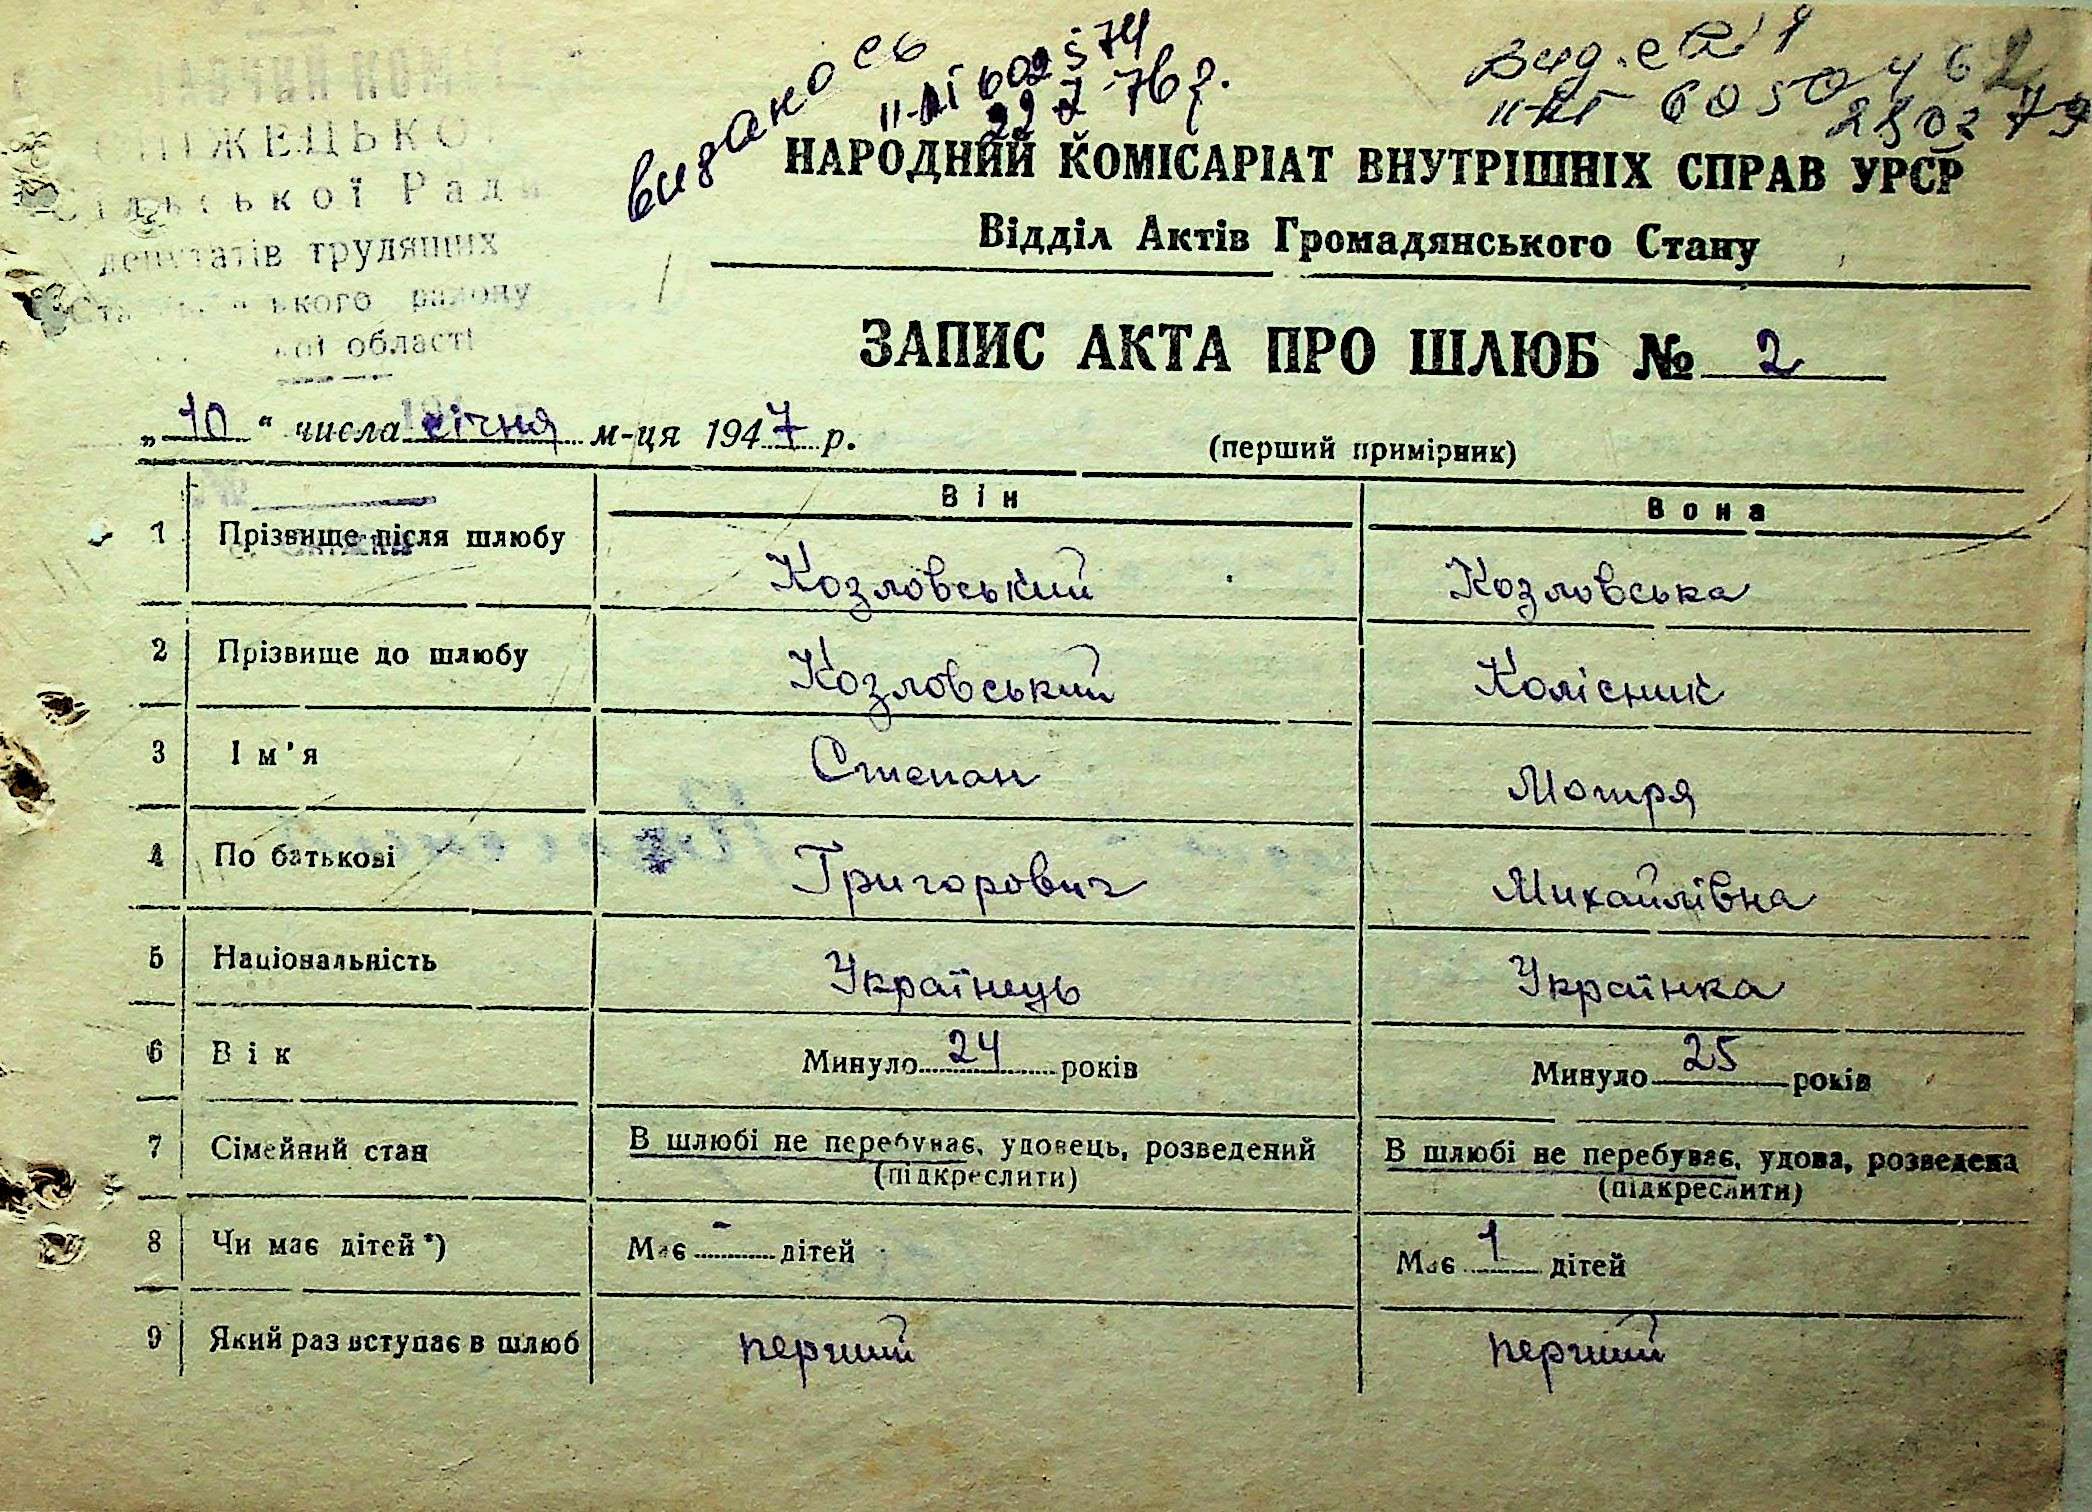 видано св
22 76 р.
НАРОДНИЙ КОМІСАРІАТ ВНУТРІШНІХ СПРАВ УРСР
Відділ Актів Громадянського Стану
Сільської Ради
депутатів трудящих
району
області
ЗАПИС АКТА ПРО ШЛЮБ № 2
„ 10 “ числа січня м-ця 1947 р.
(перший примірник)
Він Вона
1 Прізвище після шлюбу Козловський Козловська
2 Прізвище до шлюбу Козловський Колісник
3 Ім'я Степан Мотря
4 По батькові Григорович Михайлівна
5 Національність Українець Українка
6 Вік Минуло 24 років Минуло 25 років
7 Сімейний стан В шлюбі не перебуває, удовець, розведений В шлюбі не перебуває, удова, розведена
(підкреслити) (підкреслити)
8 Чи має дітей*) Має - дітей Має 1 дітей
9 Який раз вступає в шлюб перший перший